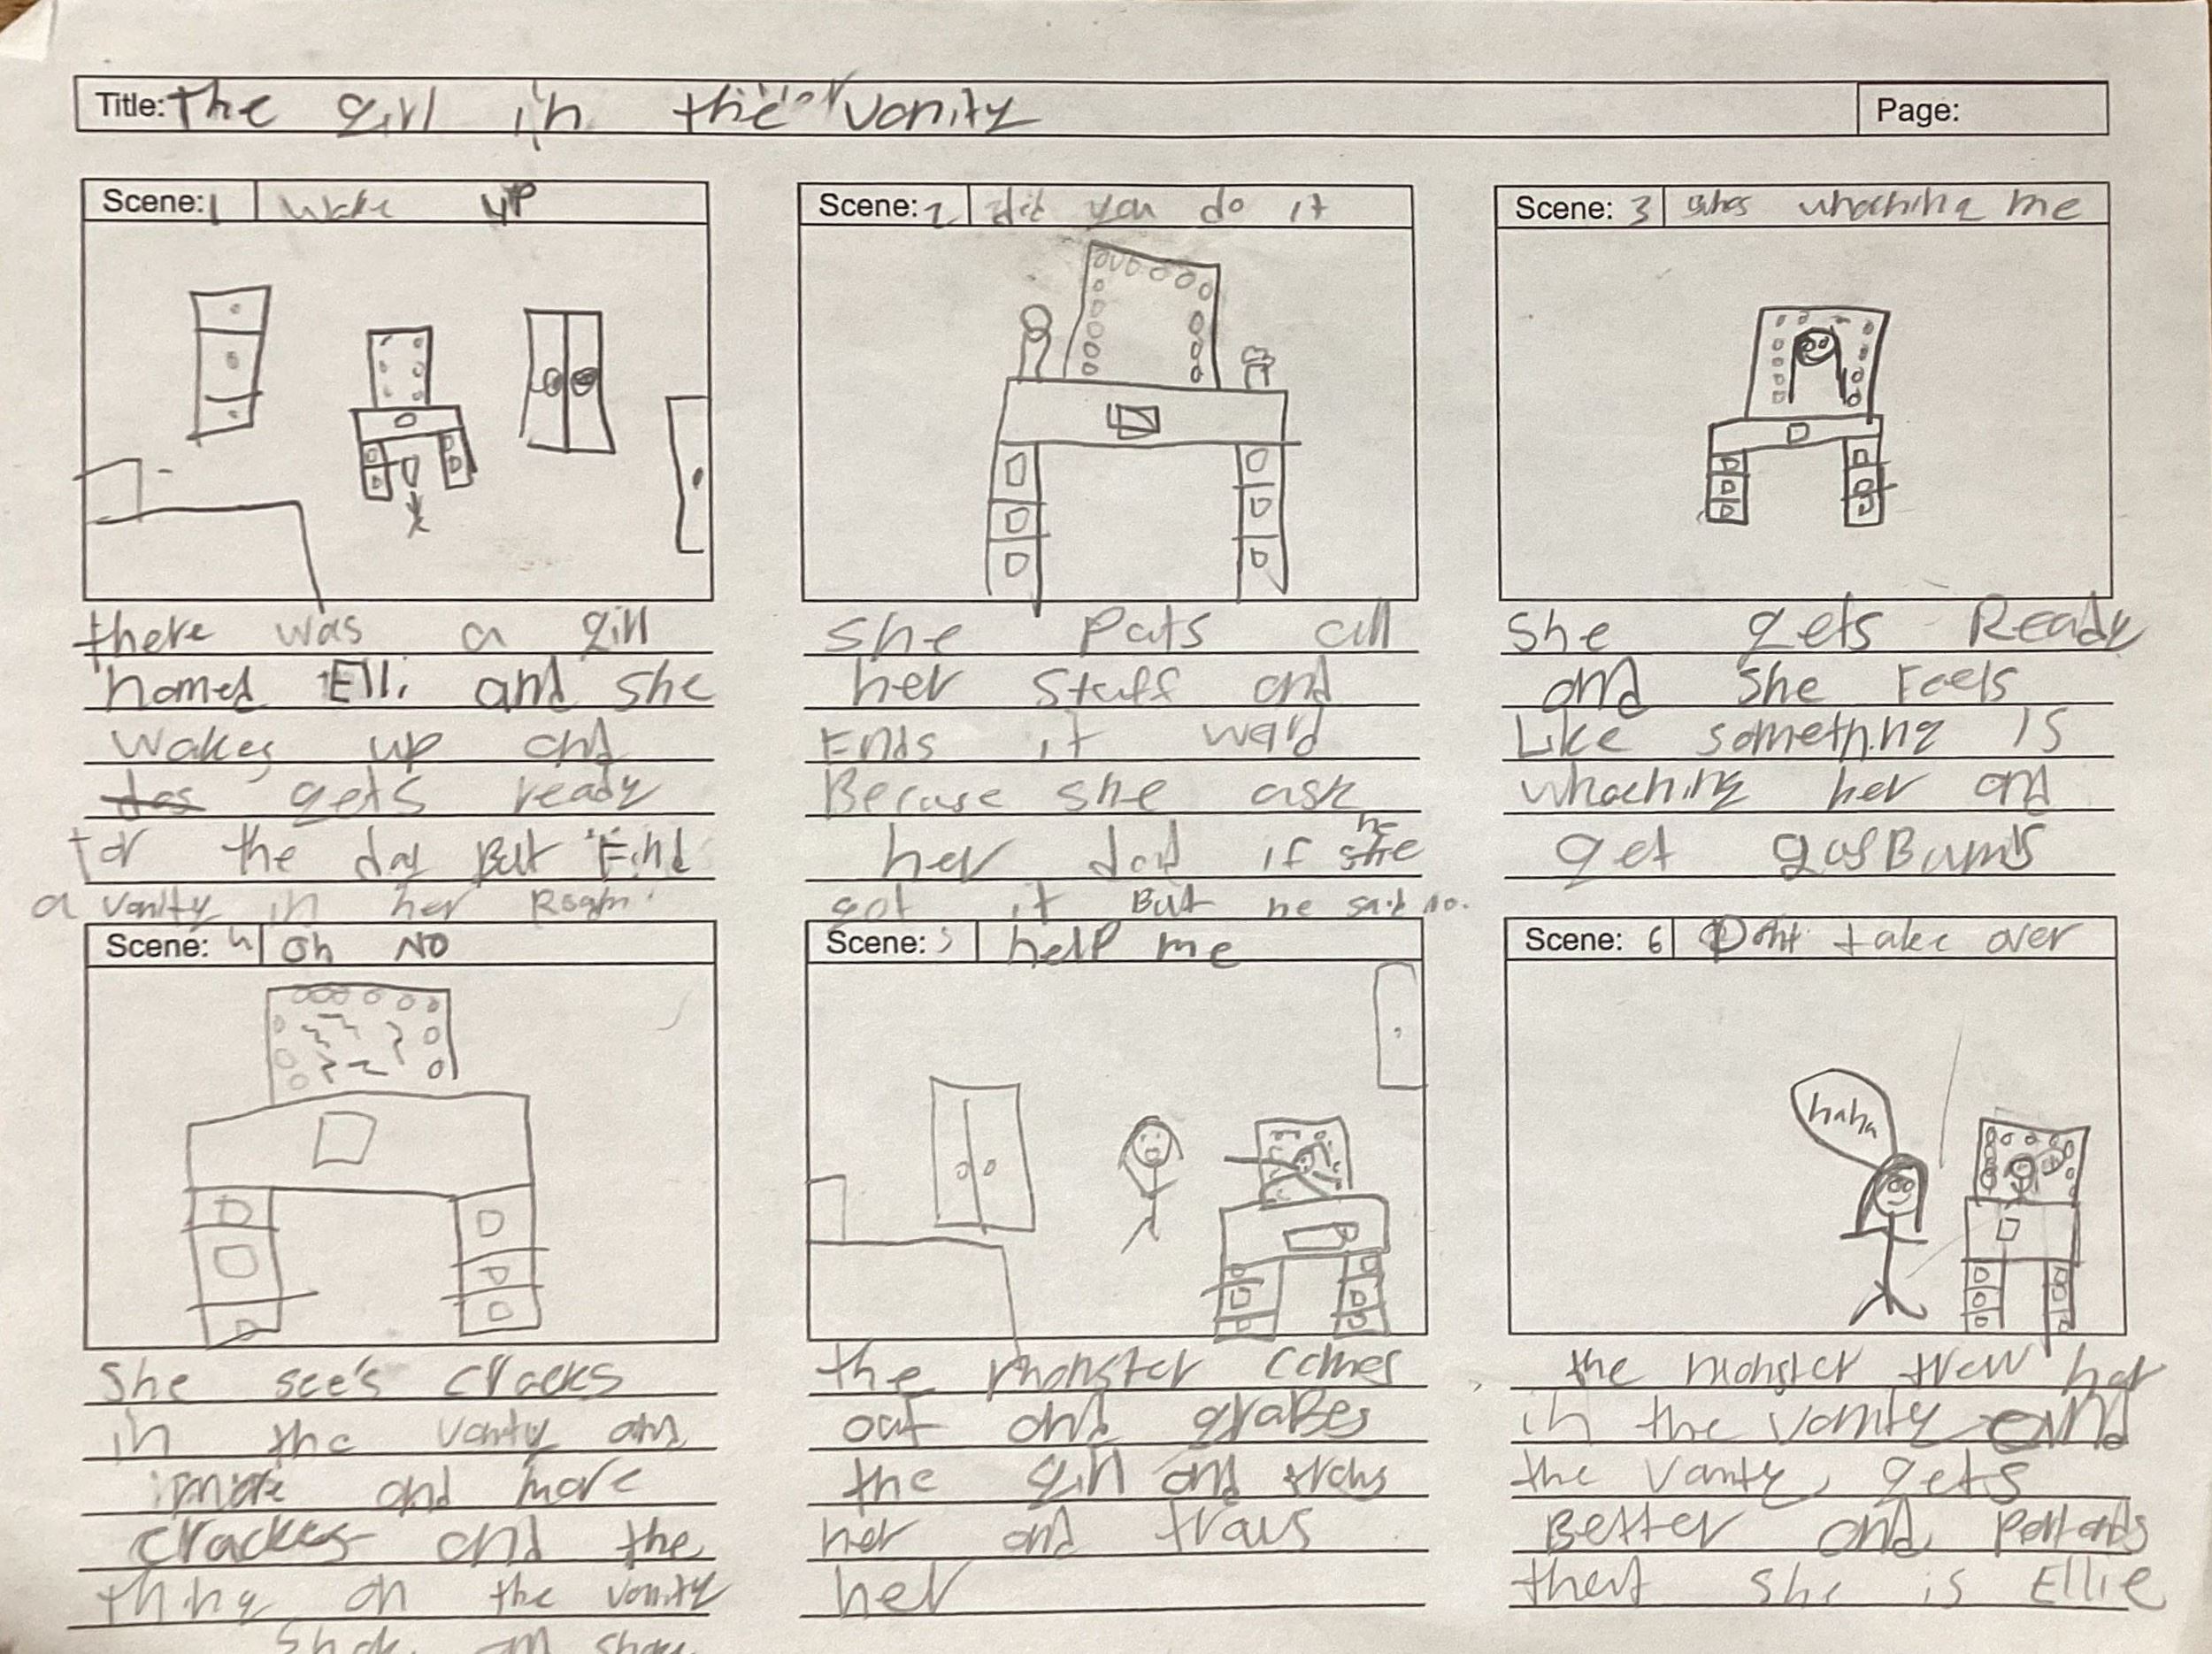 Title: The girl in the vanity
Page:
Scene: 1 wake up
there was a girl
named Elli and she
wakes up and
gets ready
for the day But Find
a vanity in her Room.
Scene: 2 did you do it
she Puts all
her stuff and
Ends it ward
Becuse she ask
her dad if he
got it But he said no.
Scene: 3 whos whaching me
She gets Ready
and she Feels
Like something is
whaching her and
get gosBums
Scene: 4 Oh NO
She see's cracks
in the vanity and
more and more
crackes and the
thing on the vanity
Scene: 5 help me
haha
the monster comes
out and graBes
the girl and trows
her and traws
her
Scene: 6 Dont take over
the monster trew her
in the vanity and
the vanity gets
Better and
that she is Ellie